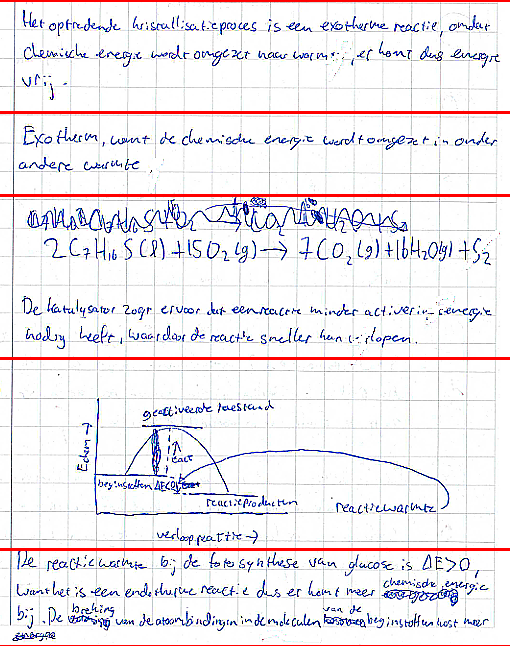 Het optredende kristallisatieproces is een exotherme reactie, omdat
chemische energie wordt omgezet naar warm... er komt dus energie
vrij.
Exotherm, want de chemische energie wordt omgezet in onder
andere warmte.
2C₇H₁₆S(l) + 15O₂(g) → 7CO₂(g) + 16H₂O(g) + S₂
De katalysator zogr ervoor dat een reactie minder activerin-senergie
nodig heeft, waardoor de reactie sneller kan verlopen.
geactiveerde toestand
Echem →
Eact
beginstoffen ΔE<0
reactieproducten
reactiewarmte
verloop reactie →
De reactiewarmte bij de fotosynthese van glucose is ΔE>0,
want het is een endotherme reactie dus er komt meer chemische energie
bij. De breking van de atoombindingen in de moleculen van de beginstoffen kost meer
energie